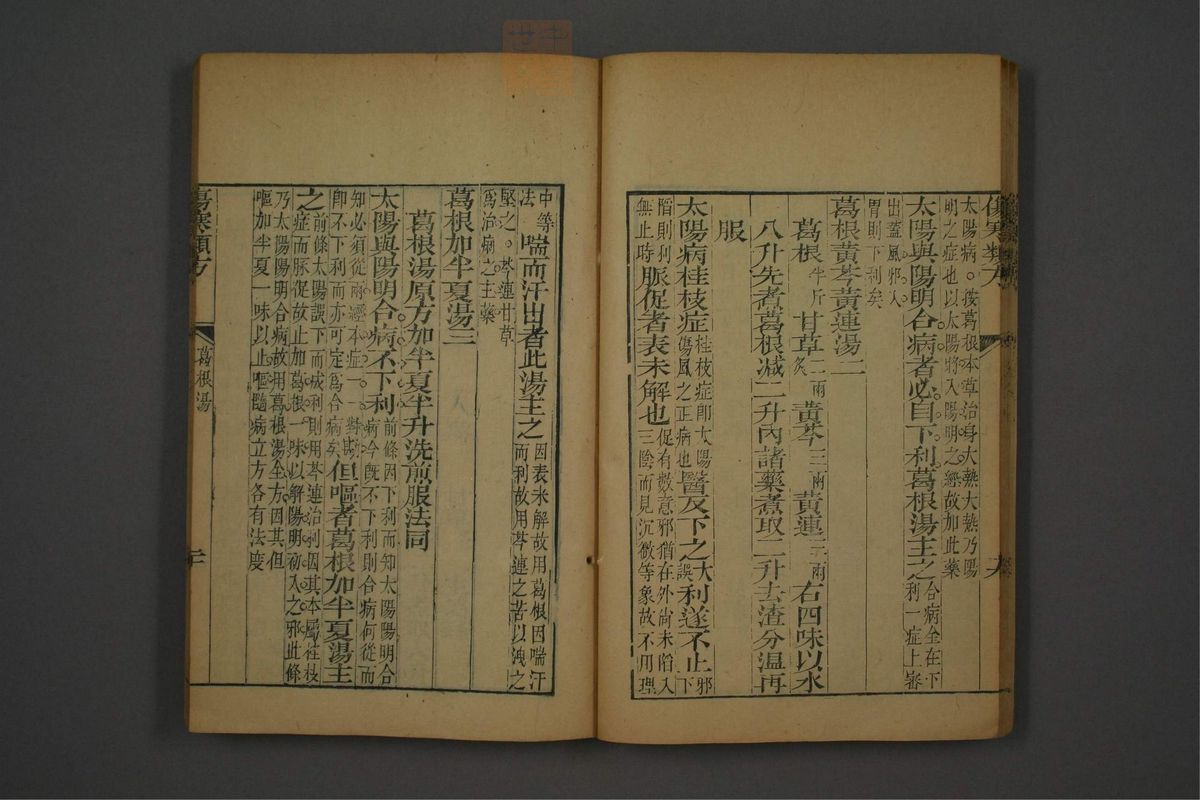 太陽病。按葛根本草治身大熱大熱乃陽
明之症也以太陽將入陽明之經故加此藥
太陽與陽明合病者必自下利葛根湯主之合病全在下利一症上審
出蓋風邪入
胃則下利矣
葛根黃芩黃連湯二
葛根半斤甘草二兩炙黃芩三兩黃連三兩右四味以水
八升先煮葛根減二升內諸藥煮取二升去渣分温再
服
太陽病桂枝症桂枝症即太陽傷風之正病也醫反下之大誤利遂不止邪下
陷則利無止時脈促者表未解也促有數意邪猶在外尚未陷入三陰而見沉微等象故不用理
中等法喘而汗出者此湯主之因表未解故用葛根因喘汗而利故用芩連之苦以洩之
堅之。芩連甘草
爲治痢之主藥
葛根加半夏湯三
葛根湯原方加半夏半升洗煎服法同
太陽與陽明合病不下利前條因下利而知太陽陽明合病今既不下利則合病何從而
知必須從兩經本症一一對勘即不下利而亦可定爲合病矣但嘔者葛根加半夏湯主
之前條太陽誤下而成利則用芩連治利因其本屬桂枝症而脈促故止加葛根一味以解陽明初入之邪此條
乃太陽陽明合病故用葛根湯全方因其但
嘔加半夏一味以止嘔隨病立方各有法度
傷寒類方
葛根湯